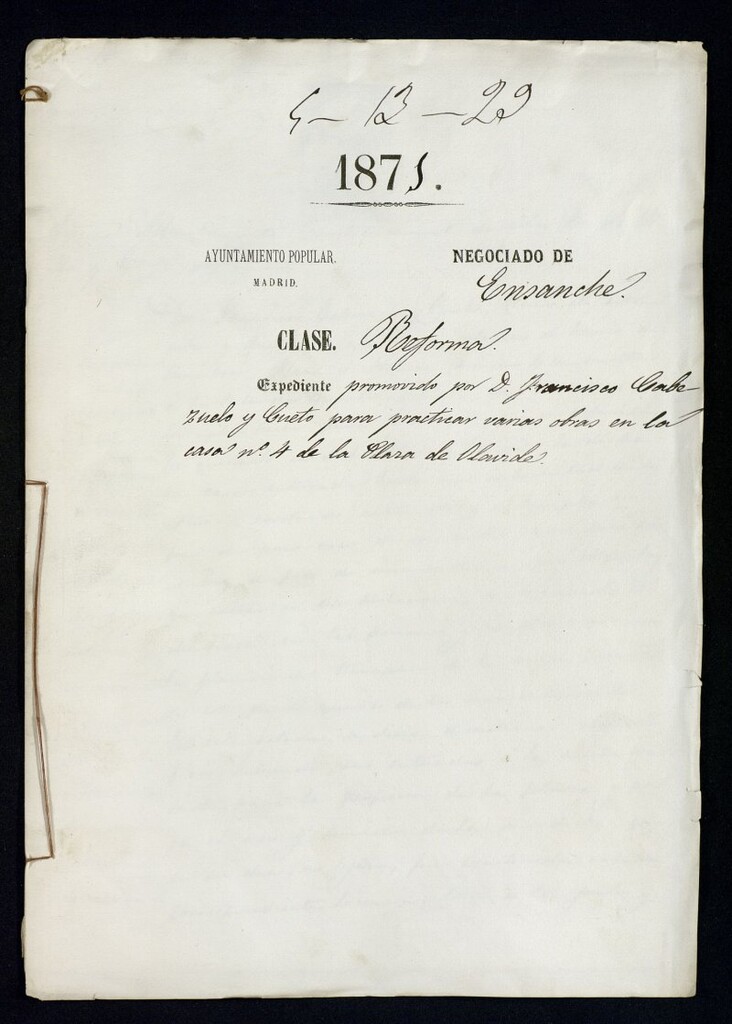 5 - 13 - 29
1871.
AYUNTAMIENTO POPULAR.
MADRID.
NEGOCIADO DE
Ensanche.
CLASE. Reforma.
Expediente promovido por D. Francisco Cabe-
zuelo y Cueto para practicar varias obras en la
casa nº. 4 de la Plaza de Olavide.